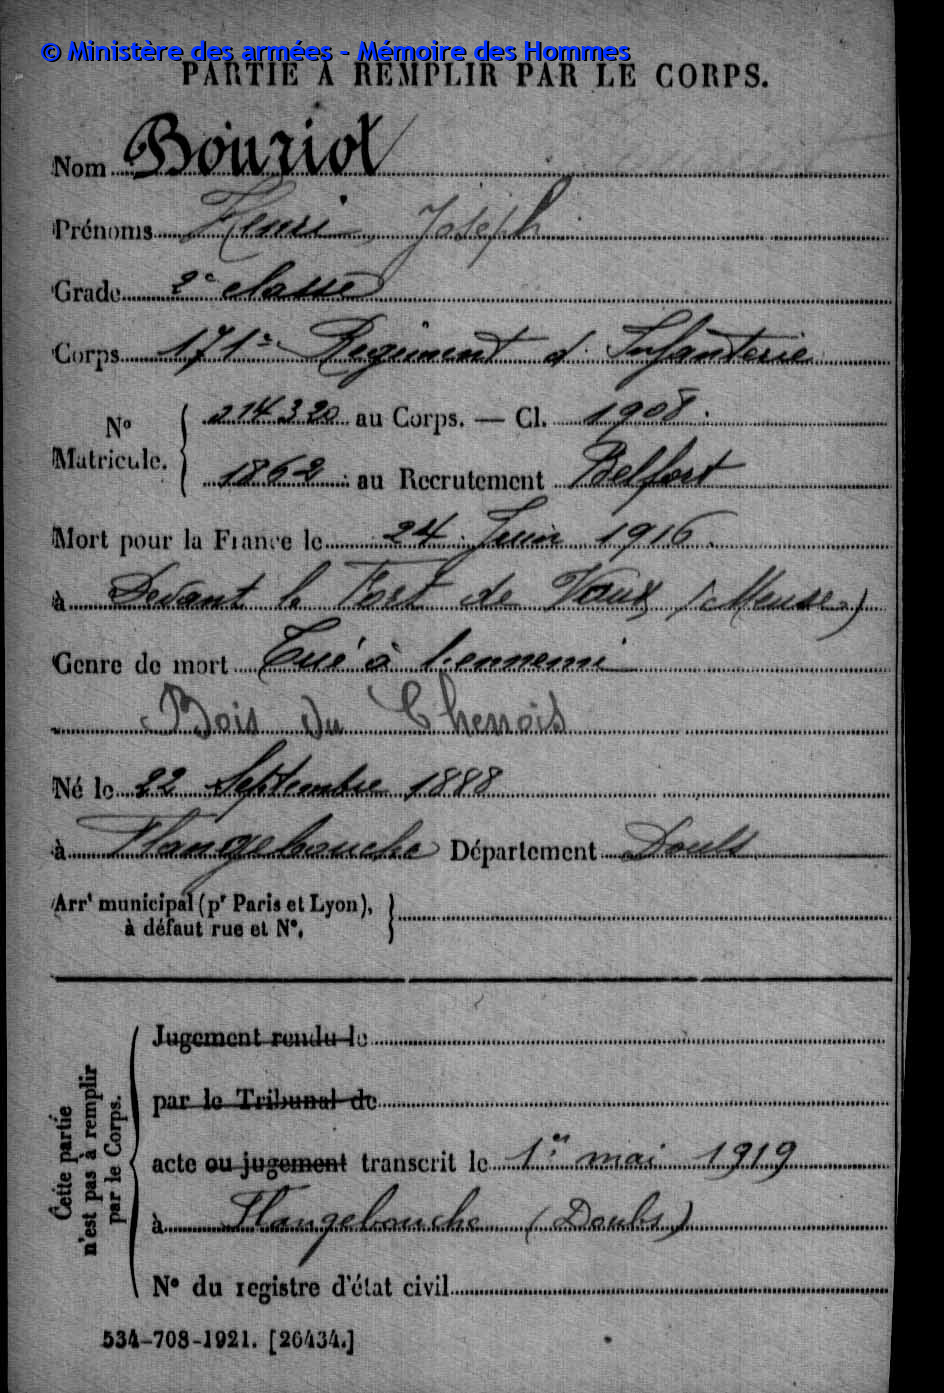 © Ministère des armées - Mémoire des Hommes
PARTIE À REMPLIR PAR LE CORPS.
Nom Bouriot
Prénoms Henri, Joseph
Grade 2e classe
Corps 171e Régiment d'Infanterie
No Matricule. { 214320 au Corps. — Cl. 1908.
1862 au Recrutement Belfort
Mort pour la France le 24 Juin 1916.
à Devant le Fort de Vaux (Meuse)
Genre de mort Tué à l'ennemi
Bois du Chenois
Né le 22 Septembre 1888
à Flangebouche Département Doubs
Arrt municipal (pr Paris et Lyon),
à défaut rue et No.
Cette partie
n'est pas à remplir
par le Corps.
Jugement rendu le
par le Tribunal de
acte ou jugement transcrit le 1er mai 1919
à Flangebouche (Doubs)
No du registre d'état civil
534-708-1921. [26434.]